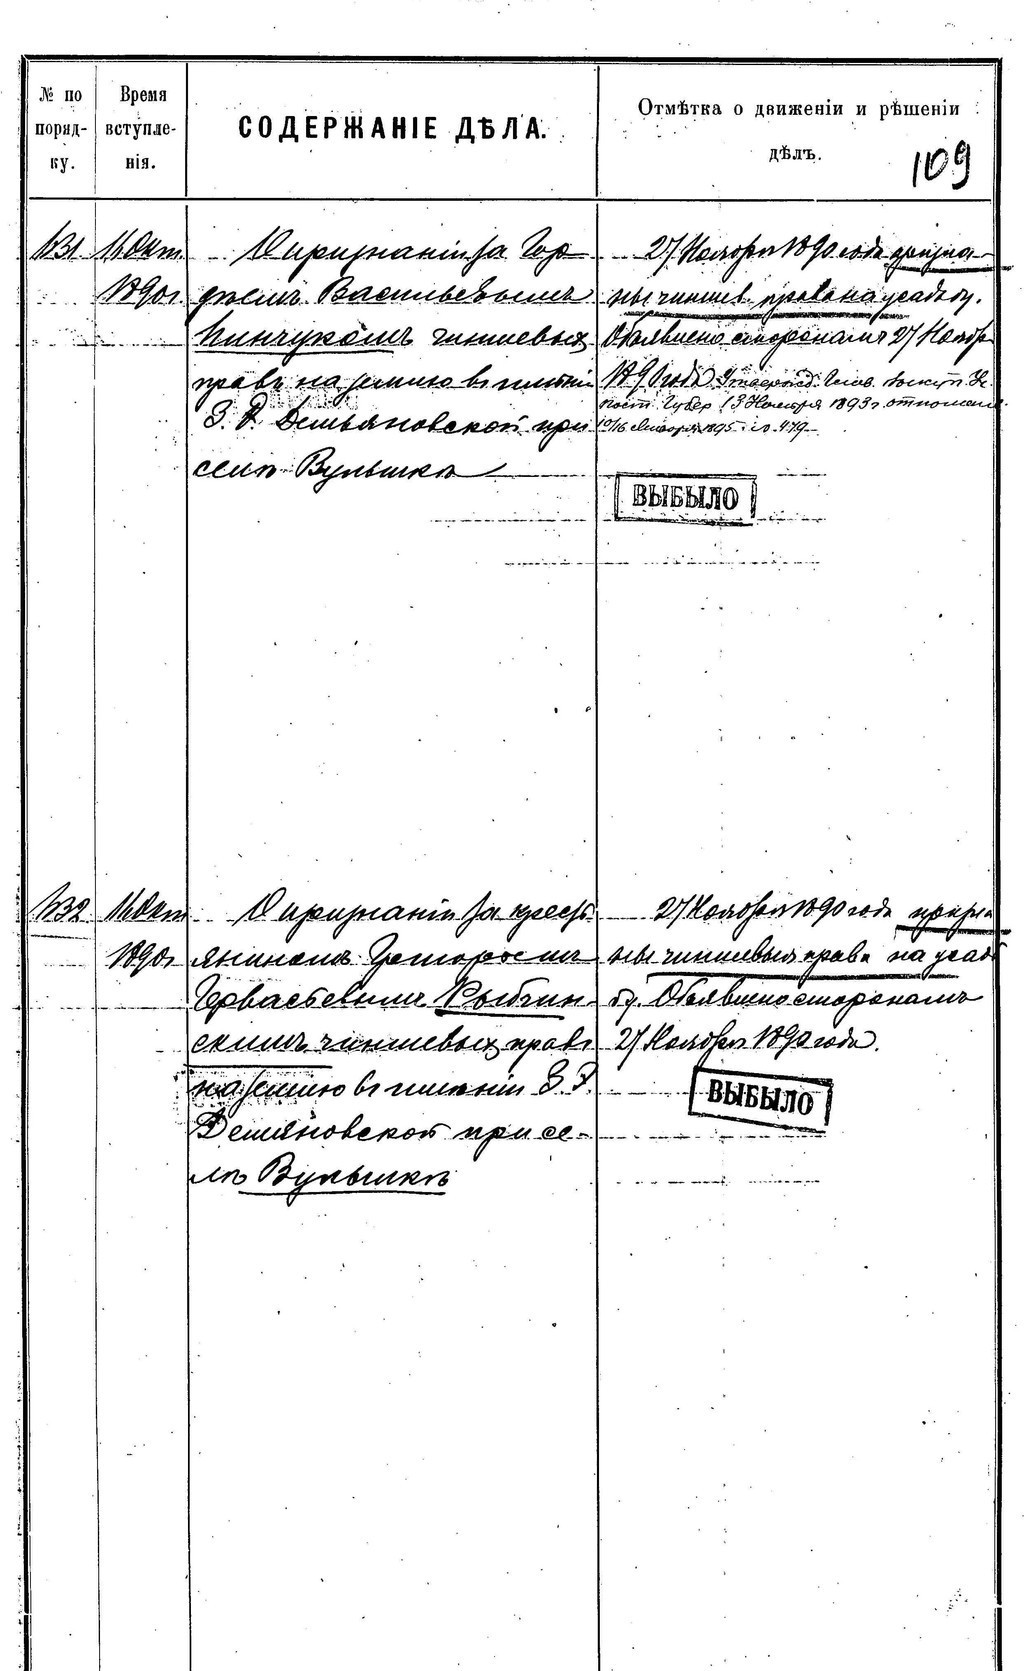 № по поряд-ку.
Время вступле-нія.
СОДЕРЖАНІЕ ДѢЛА.
Отмѣтка о движеніи и рѣшеніи дѣлъ.
109
131
11 Окт.
1890 г
О признаніи за Гор
дѣемъ Васильевымъ
Кинчукомъ чиншевыхъ
правъ на землю въ имѣніи
З. Ѳ. Демьяновской при
селѣ Вулькѣ
27 Ноября 1890 года призна-
ны чиншев. права на усадьбу.
Объявлено сторонамъ 27 Ноября
1890 года
Губер 13 Ноября 1893 г. отношен.
16 Января 1895 г. № 479
ВЫБЫЛО
132
11 Окт
1890 г
О признаніи за кресть
яниномъ Григоріемъ
Гервасьевымъ Рыбчин-
скимъ чиншевыхъ правъ
на землю въ имѣніи З. Ѳ.
Демяновской при се-
лѣ
27 Ноября 1890 года призна
ны чиншевыя права на усадь
бу. Объявлено сторонамъ
27 Ноября 1890 года.
ВЫБЫЛО